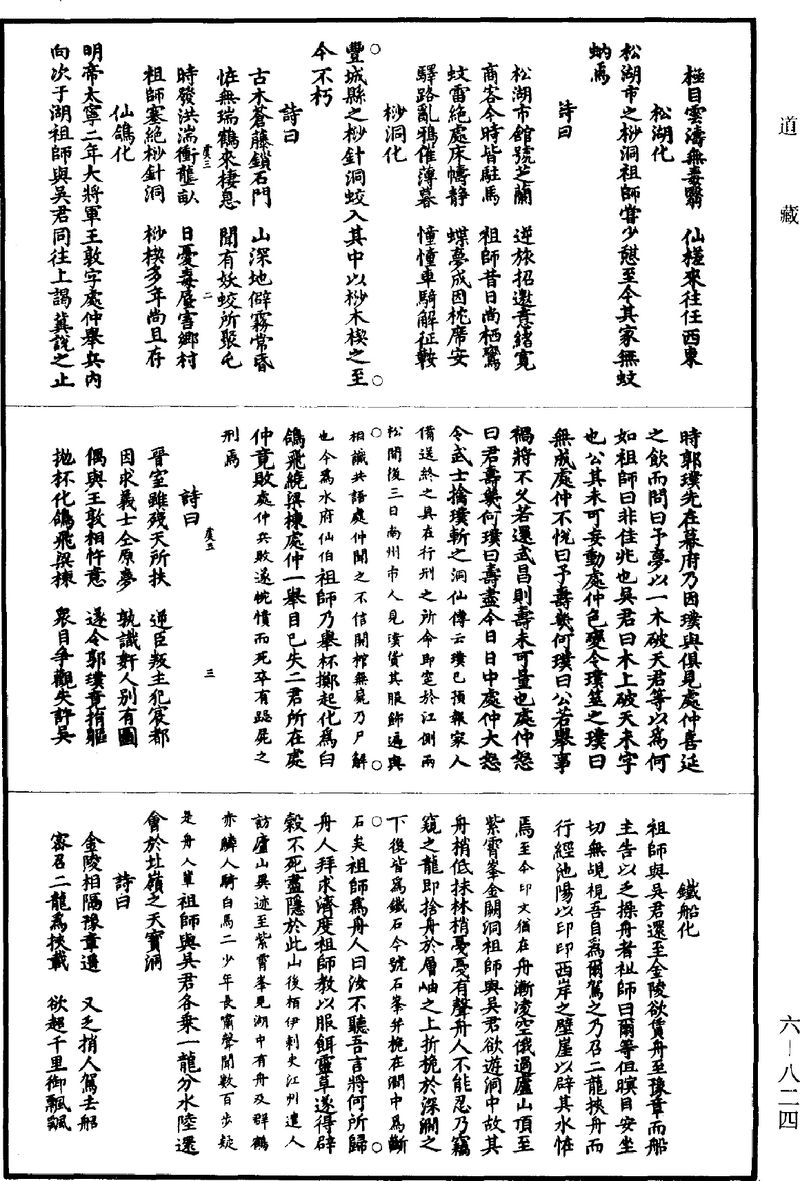 道藏
極目雲濤無毒翳　仙槎來往任西東
松湖化
松湖市之杪洞祖師嘗少憇至今其家無蚊
蚋焉
詩曰
松湖市館號芝蘭　逆旅招邀意緒寬
商客今時皆駐馬　祖師昔日尚栖鸞
蚊雷絶處床幬静　蝶夢成因枕席安
驛路亂鴉催薄暮　憧憧車騎解征鞍
杪洞化
○豐城縣之杪針洞蛟入其中以杪木楔之至○
今不朽
詩曰
古木蒼藤鎖石門　山深地僻霧常昏
恠無瑞鶴來棲息　聞有妖蛟所聚屯
時發洪湍衝壟畝　日憂毒蜃害鄉村
祖師塞絶杪針洞　杪楔多年尚且存
虞三　二
仙鴿化
明帝太寧二年大將軍王敦字處仲舉兵内
向次于湖祖師與吳君同往上謁冀說之止
時郭璞先在幕府乃因璞與俱見處仲喜延
之飲而問曰予夢以一木破天君等以爲何
如祖師曰非佳兆也吳君曰木上破天未字
也公其未可妄動處仲色變令璞筮之璞曰
無成處仲不悅曰予壽幾何璞曰公若舉事
禍將不久若還武昌則壽未可量也處仲怒
曰君壽幾何璞曰壽盡今日日中處仲大怒
令武士擒璞斬之洞仙傳云璞已預報家人
備送終之具在行刑之所命即窆於江側兩
松間後三日南州市人見璞貨其服飾遍與
○相識共語處仲聞之不信開棺無屍乃尸解○
也今爲水府仙伯祖師乃舉杯擲起化爲白
鴿飛繞梁棟處仲一舉目已失二君所在處
仲竟敗處仲兵敗遂惋憤而死卒有跽屍之
刑焉
詩曰
虞五　三
晉室雖殘天所扶　逆臣叛主犯宸都
因求義士全原夢　孰識奸人別有圖
偶與王敦相忤意　遂令郭璞竟捐軀
抛杯化鴿飛梁棟　衆目争觀失許吳
鐵船化
祖師與吳君還至金陵欲賃舟至豫章而船
主告以乏操舟者祖師曰爾等但瞑目安坐
切無覘視吾自爲爾駕之乃召二龍挾舟而
行經池陽以印印西岸之壁崖以辟其水恠
焉至今印文猶在舟漸淩空俄過廬山頂至
紫霄峯金闕洞祖師與吳君欲遊洞中故其
舟梢低抹林梢戛戛有聲舟人不能忍乃竊
窺之龍即捨舟於層岫之上折桅於深澗之
下後皆爲鐵石今號石峯并桅在澗中爲斷
○石矣祖師爲舟人曰汝不聽吾言將何所歸○
舟人拜求濟度祖師教以服餌靈草遂得辟
穀不死盡隱於此山後栢伊刺史江州遣人
訪廬山異迹至紫霄峯見湖中有舟及群鶴
亦驎人騎白馬二少年長嘯聲聞數百步疑
是舟人軰祖師與吳君各乗一龍分水陸還
會於北嶺之天寶洞
詩曰
金陵相隔豫章遥　又乏捎人駕去船
密召二龍爲挾載　欲超千里御飄飄
六—八二四